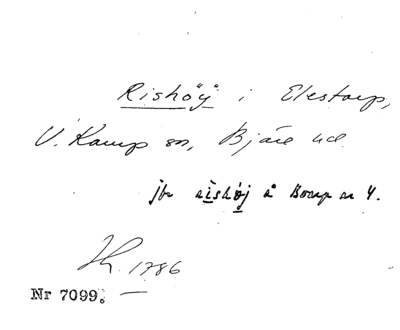 Rishöÿ i Elestorp,
V. Karup sn, Bjäre hd.
jbr rishöj å Boarp nr 4.
Lh. 1786
Nr 7099.